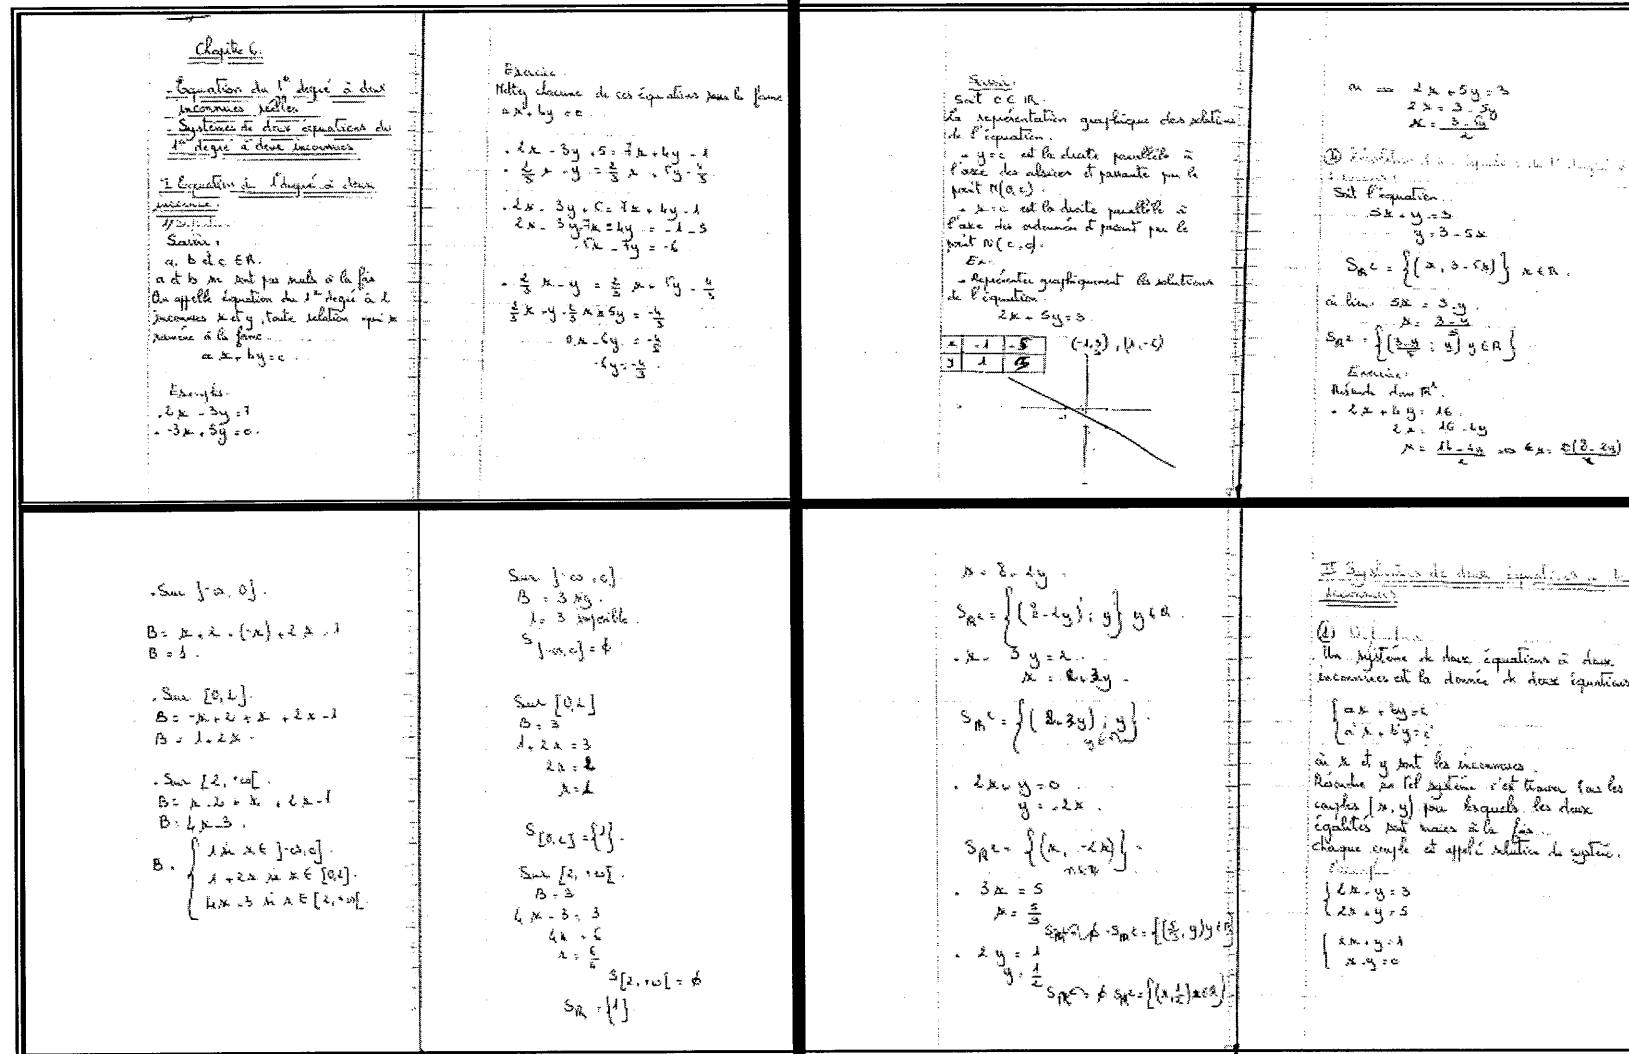 Chapitre 6.
- Equation du 1er degré à deux
inconnues réelles
- Systèmes de deux équations du
1er degré à deux inconnues
I Equation du 1 degré à deux
inconnue.
Savoir :
a, b et c ∈ R.
a et b ne sont pas nuls à la fois
On appelle équation du 1er degré à 2
inconnues x et y, toute relation qui se
ramène à la forme
ax + by = c
Exemples.
. 2x - 3y = 7
. -3x + 5y = 0.
Exercice.
Mettez chacune de ces équations sous la forme
ax + by = c
. 2x - 3y + 5 = 7x + 4y - 1
. 2/3 x - y = 2/3 x + 5y - 4/3
. 2x - 3y + 5 = 7x + 4y - 1
2x - 3y - 7x - 4y = -1 - 5
-5x - 7y = -6
. 2/3 x - y = 2/3 x + 5y - 4/3
2/3 x - y - 2/3 x - 5y = -4/3
0x - 6y = -4/3
-6y = -4/3.
Savoir.
Soit c ∈ IR.
La représentation graphique des solutions
de l'équation.
. y = c est la droite parallèle à
l'axe des abscisses et passante par le
point M(0, c).
. x = c est la droite parallèle à
l'axe des ordonnées et passant par le
point N(c, o).
Ex:
. Représentez graphiquement les solutions
de l'équation.
2x + 5y = 3
x -1 -5
y 1
2x + 5y = 3
2x = 3 - 5y
x = 3 - 5y / 2
Soit l'équation
5x + y = 3
y = 3 - 5x
S R² = {(x, 3 - 5x)} x ∈ R.
ou bien. 5x = 3 - y
x = 3 - y / 5
S R² = {(3-y / 5 ; y) y ∈ R}
Exercice.
Résoudre dans R²
. 2x + 4y = 16.
2x = 16 - 4y
x = 16 - 4y / 2
. Sur ]-∞, 0].
B = x + 2 + (-x) + 2x - 1
B = 1.
. Sur [0, 2].
B = -x + 2 + x + 2x - 1
B = 1 + 2x
. Sur [2, +∞[
B = x - 2 + x + 2x - 1
B = 4x - 3.
B = { 1 si x ∈ ]-∞, 0].
1 + 2x si x ∈ [0, 2].
4x - 3 si x ∈ [2, +∞[.
Sur ]-∞, 0].
B = 3
1 = 3 impossible.
S ]-∞, 0] = ∅
Sur [0, 2]
B = 3
1 + 2x = 3
2x = 2
x = 1
S [0, 2] = {1}.
Sur [2, +∞[.
B = 3
4x - 3 = 3
4x = 6
x = 6/4
S [2, +∞[ = ∅
S IR = {1}.
x = 8 - 2y
S R² = {(8 - 2y) ; y} y ∈ R.
. x - 3y = 2.
x = 2 + 3y
S R² = {(2 + 3y) ; y}
. 2x + y = 0
y = -2x.
S R² = {(x, -2x)}.
x ∈ R
. 3x = 5
x = 5/3
S R² = {(5/3, y) y ∈ R}
. 2y = 1
y = 1/2
S R² = {(x, 1/2) x ∈ R}
II Systèmes de deux équations
inconnues
Un système de deux équations à deux
inconnues est la donnée de deux équations
{ ax + by = c
{ a'x + b'y = c'
où x et y sont les inconnues.
Résoudre un tel système c'est trouver tous les
couples (x, y) pour lesquels les deux
égalités sont vraies à la fois.
Chaque couple est appelé solution du système.
{ 2x - y = 3
{ 2x + y = 5
{ 2x + y = 1
{ x - y = 0